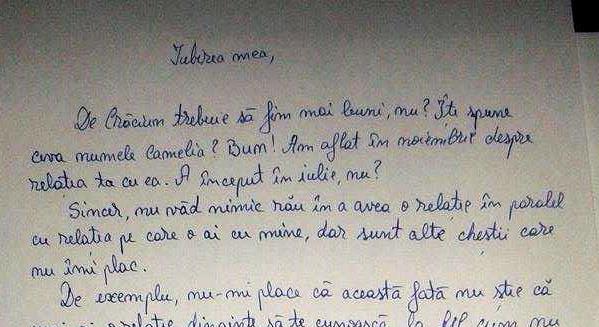 Iubirea mea,
De Crăciun trebuie să fim mai buni, nu? Îți spune
ceva numele Camelia? Bum! Am aflat în noiembrie despre
relația ta cu ea. A început în iulie, nu?
Sincer, nu văd nimic rău în a avea o relație în paralel
cu relația pe care o ai cu mine, dar sunt alte chestii care
nu îmi plac.
De exemplu, nu-mi place că această fată nu știe că
o relație dinainte să te cunoască, la fel cum nu